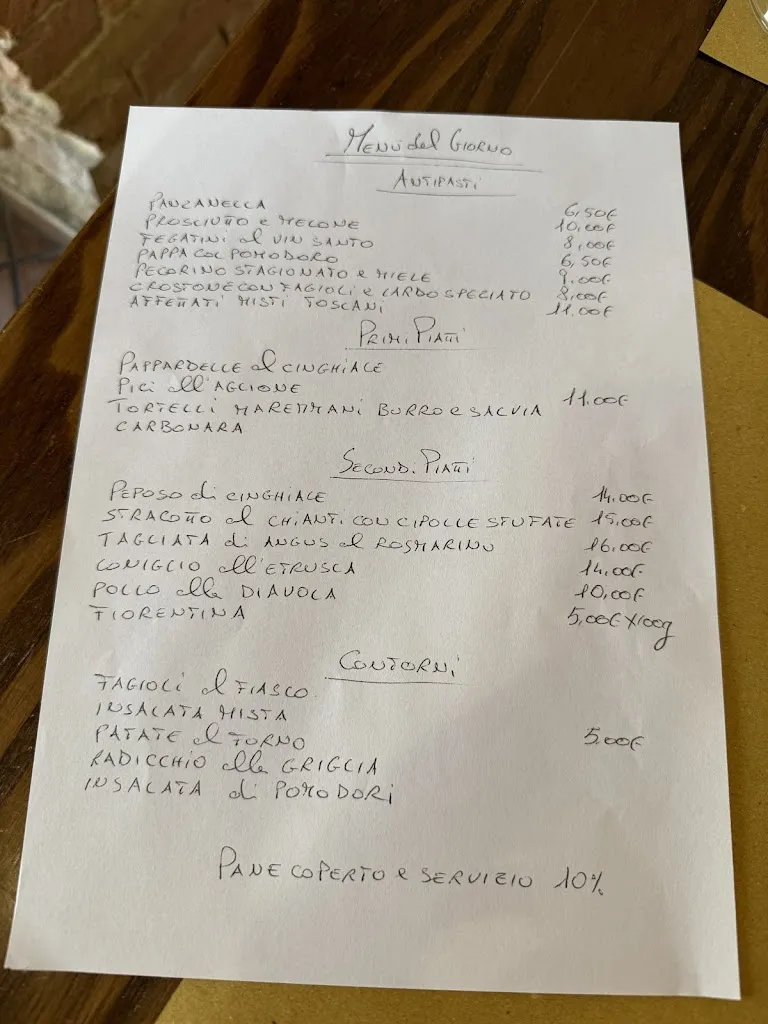 Menù del Giorno
Antipasti
PANZANELLA 6,50€
PROSCIUTTO e MELONE 10,00€
FEGATINI al VIN SANTO 8,00€
PAPPA COL POMODORO 6,50€
PECORINO STAGIONATO e MIELE 9,00€
CROSTONE CON FAGIOLI e LARDO SPEZIATO 8,00€
AFFETTATI MISTI TOSCANI 11.00€
Primi Piatti
PAPPARDELLE al CINGHIALE
PICI all'AGLIONE
TORTELLI MAREMMANI BURRO e SALVIA 11.00€
CARBONARA
Secondi Piatti
PEPOSO di CINGHIALE 14.00€
STRACOTTO al CHIANTI CON CIPOLLE STUFATE 15,00€
TAGLIATA di ANGUS al ROSMARINO 16.00€
CONIGLIO all'ETRUSCA 14.00€
POLLO alla DIAVOLA 10,00€
FIORENTINA 5,00€ X100g
Contorni
FAGIOLI al FIASCO
INSALATA MISTA
PATATE al FORNO 5.00€
RADICCHIO alla GRIGLIA
INSALATA di POMODORI
PANE COPERTO e SERVIZIO 10%